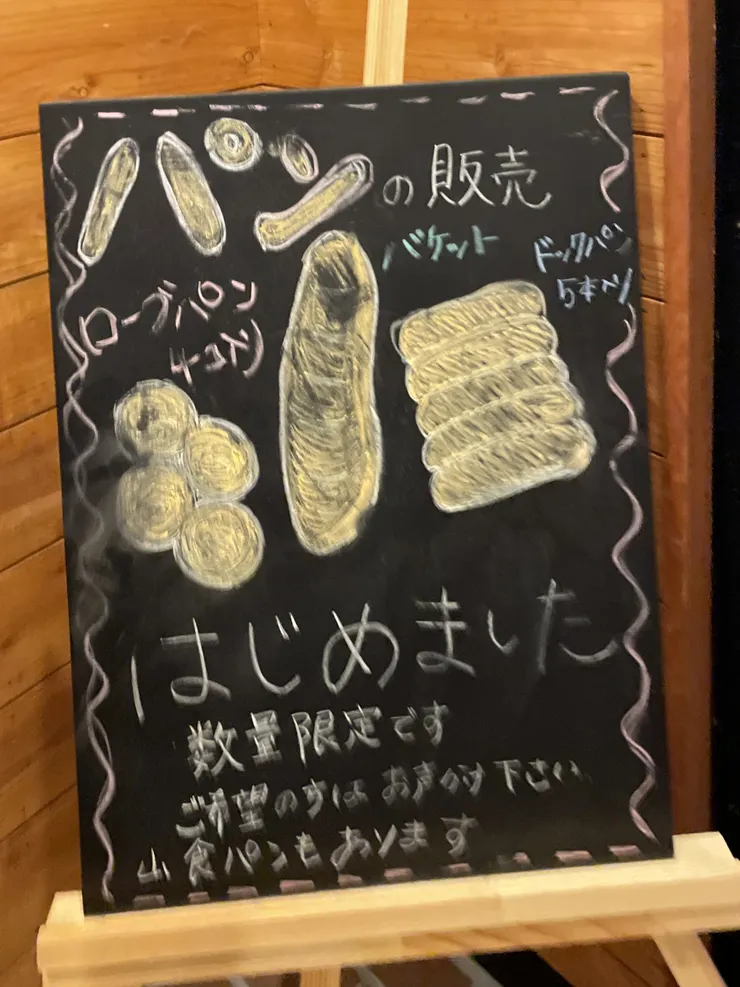 パンの販売
バケット
ドックパン
5本入り
ローブパン
4コ入り
はじめました
数量限定です
ご希望の方はお声がけ下さい
山食パンもあります